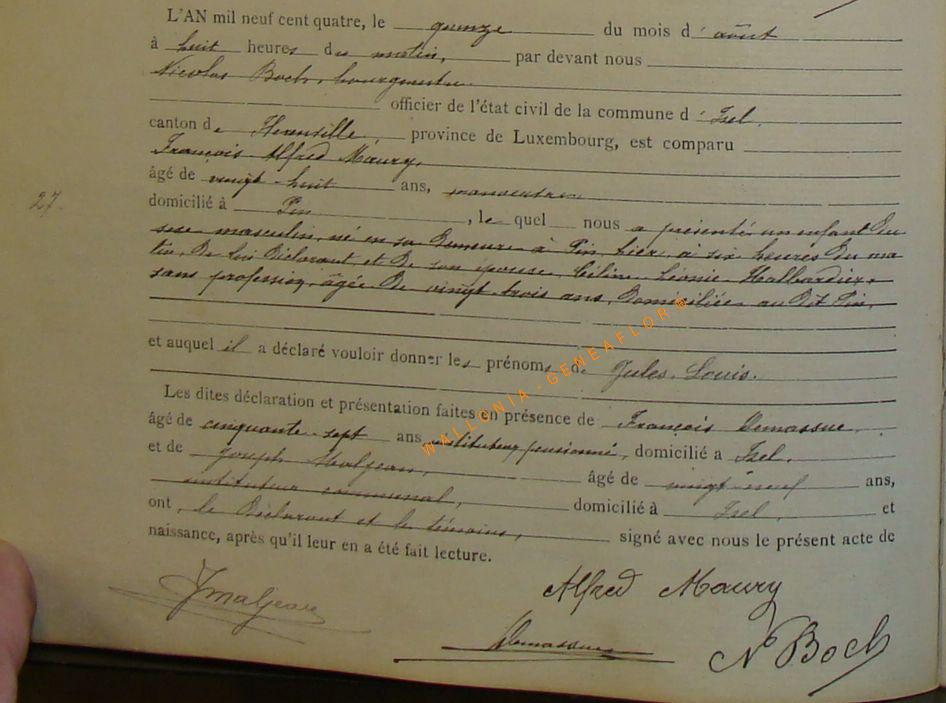 L'AN mil neuf cent quatre, le quinze du mois d' août
à huit heures du matin, par devant nous
Nicolas Boch, bourgmestre
officier de l'état civil de la commune d' Izel,
canton de Florenville, province de Luxembourg, est comparu
François Alfred Maury,
âgé de vingt-huit ans,
27.
domicilié à Pin, le quel nous a présenté un enfant du
sexe masculin, né en sa demeure à Pin, hier, à six heures du ma
tin, de lui Déclarant, et de son épouse, Céline Léonie Halbardier,
sans profession, âgée de vingt trois ans, domiciliée au dit Pin,
et auquel il a déclaré vouloir donner les prénoms de Jules Louis.
Les dites déclaration et présentation faites en présence de François Demassue
âgé de cinquante-sept ans instituteur pensionné, domicilié a Izel,
et de Joseph Maljean, âgé de vingt-neuf ans,
instituteur communal, domicilié à Izel, et
ont, le Déclarant et les témoins, signé avec nous le présent acte de
naissance, après qu'il leur en a été fait lecture.
WALLONIA-GENEAFLOR®
JMaljean
Alfred Maury
Demassue
N Boch